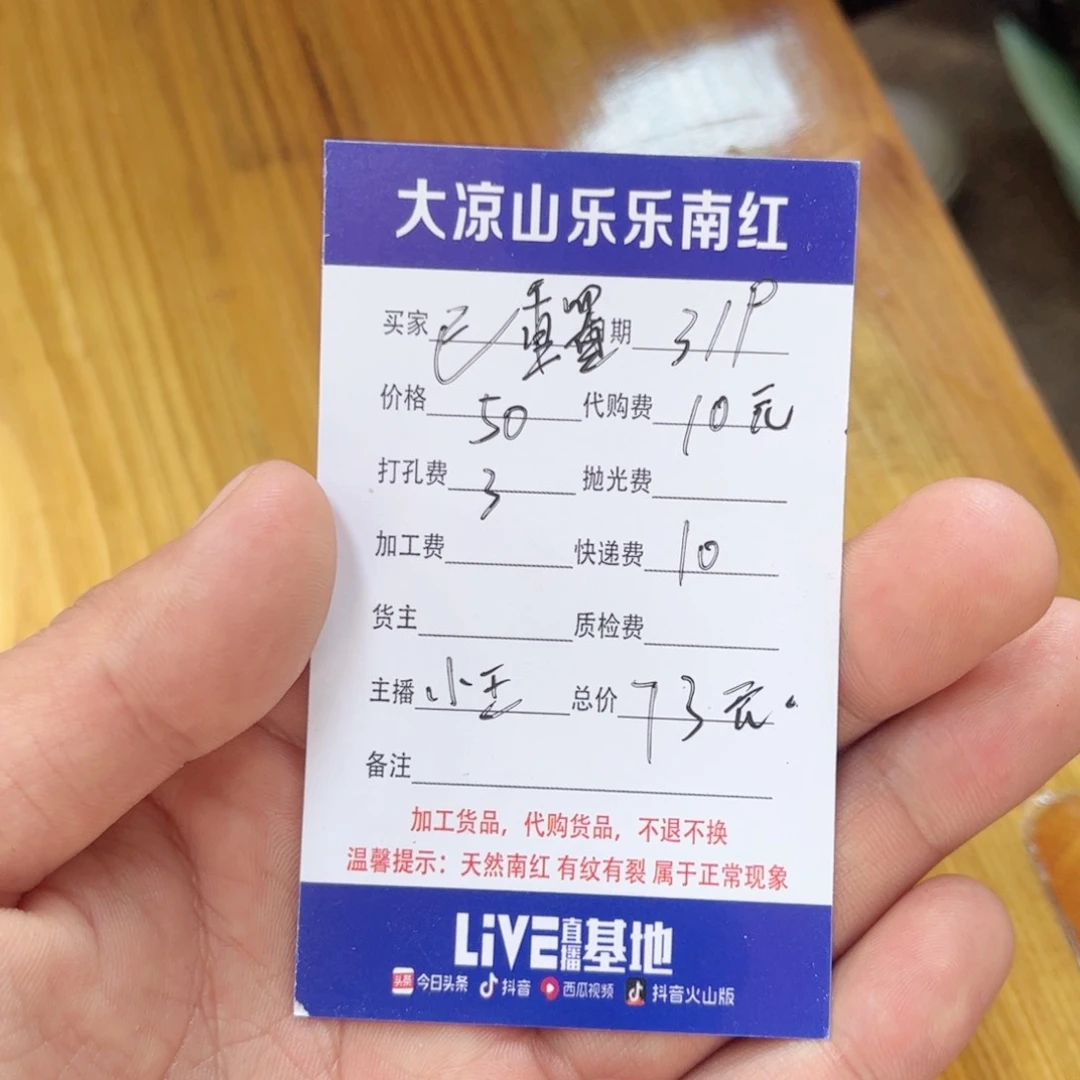 大凉山乐乐南红
买家 已重置 期 31P
价格 50 代购费 10元
打孔费 3 抛光费
加工费 快递费 10
货主 质检费
主播 小王 总价 73元
备注
加工货品，代购货品，不退不换
温馨提示：天然南红 有纹有裂 属于正常现象
LiVE直播基地
头条 今日头条 抖音 西瓜视频 抖音火山版